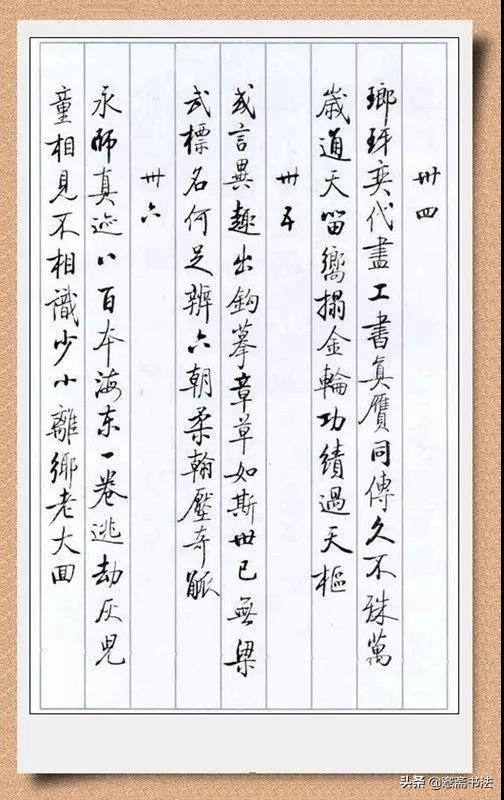 卅四
瑯玡奕代盡工書真贋同傳久不殊萬
歲通天留嚮搨金輪功績過天樞
卅五
或言異趣出鈎摹章草如斯世已無梁
武標名何足辨六朝柔翰壓奇觚
卅六
永師真迹八百本海东一卷逃劫灰兒
童相見不相識少小離鄉老大回
头条 @斋书法